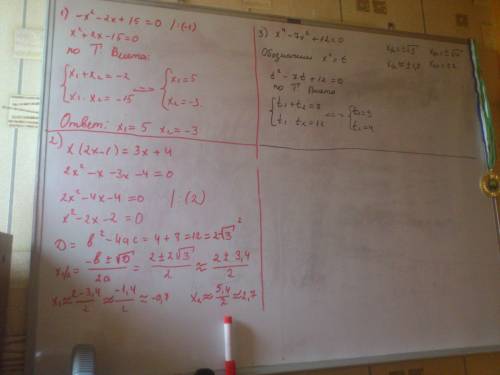 1) -x² - 2x + 15 = 0 /·(-1)
x² + 2x - 15 = 0
по Т. Виета:
{ x₁ + x₂ = -2
x₁ · x₂ = -15 <=> { x₁ = 5
x₂ = -3.
Ответ: x₁ = 5 x₂ = -3
2) x(2x-1) = 3x + 4
2x² - x - 3x - 4 = 0
2x² - 4x - 4 = 0 /:(2)
x² - 2x - 2 = 0
D = b² - 4ac = 4 + 8 = 12 = 2√3²
x₁/₂ = (-b ± √D)/2a = (2 ± 2√3)/2 ≈ (2 ± 3,4)/2
x₁ ≈ (2 - 3,4)/2 ≈ (-1,4)/2 ≈ -0,7 x₂ ≈ 5,4/2 ≈ 2,7
3) x⁴ - 7x² + 12 = 0
Обозначим x² = t
t² - 7t + 12 = 0
по Т. Виета
{ t₁ + t₂ = 7
t₁ · t₂ = 12 <=> { t₁ = 3
t₂ = 4